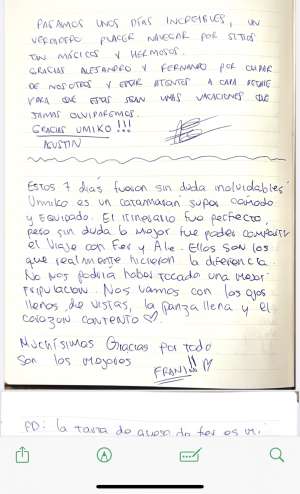 PASAMOS UNOS DÍAS INCREIBLES, UN
VERDADERO PLACER NAVEGAR POR SITIOS
TAN MÁGICOS Y HERMOSOS.
GRACIAS ALEJANDRO Y FERNANDO POR CUIDAR
DE NOSOTROS Y ESTAR ATENTOS A CADA DETALLE
PARA QUE ESTAS SEAN UNAS VACACIONES QUE
JAMAS OLVIDAREMOS.
GRACIAS UMIKO!!!
AGUSTIN
Estos 7 días fueron sin duda inolvidables
Umiko es un catamarán super cómodo
y equipado. El itinerario fue perfecto,
pero sin duda lo mejor fue poder compartir
el viaje con Fer y Ale. Ellos son los
que realmente hicieron la diferencia.
No nos podría haber tocado una mejor
tripulación. Nos vamos con los ojos
llenos de vistas, la panza llena y el
corazón contento ♡.
Muchísimas Gracias por todo
Son los mejores
FRAN!! ♡
PD: la tarta de queso de fer es mi